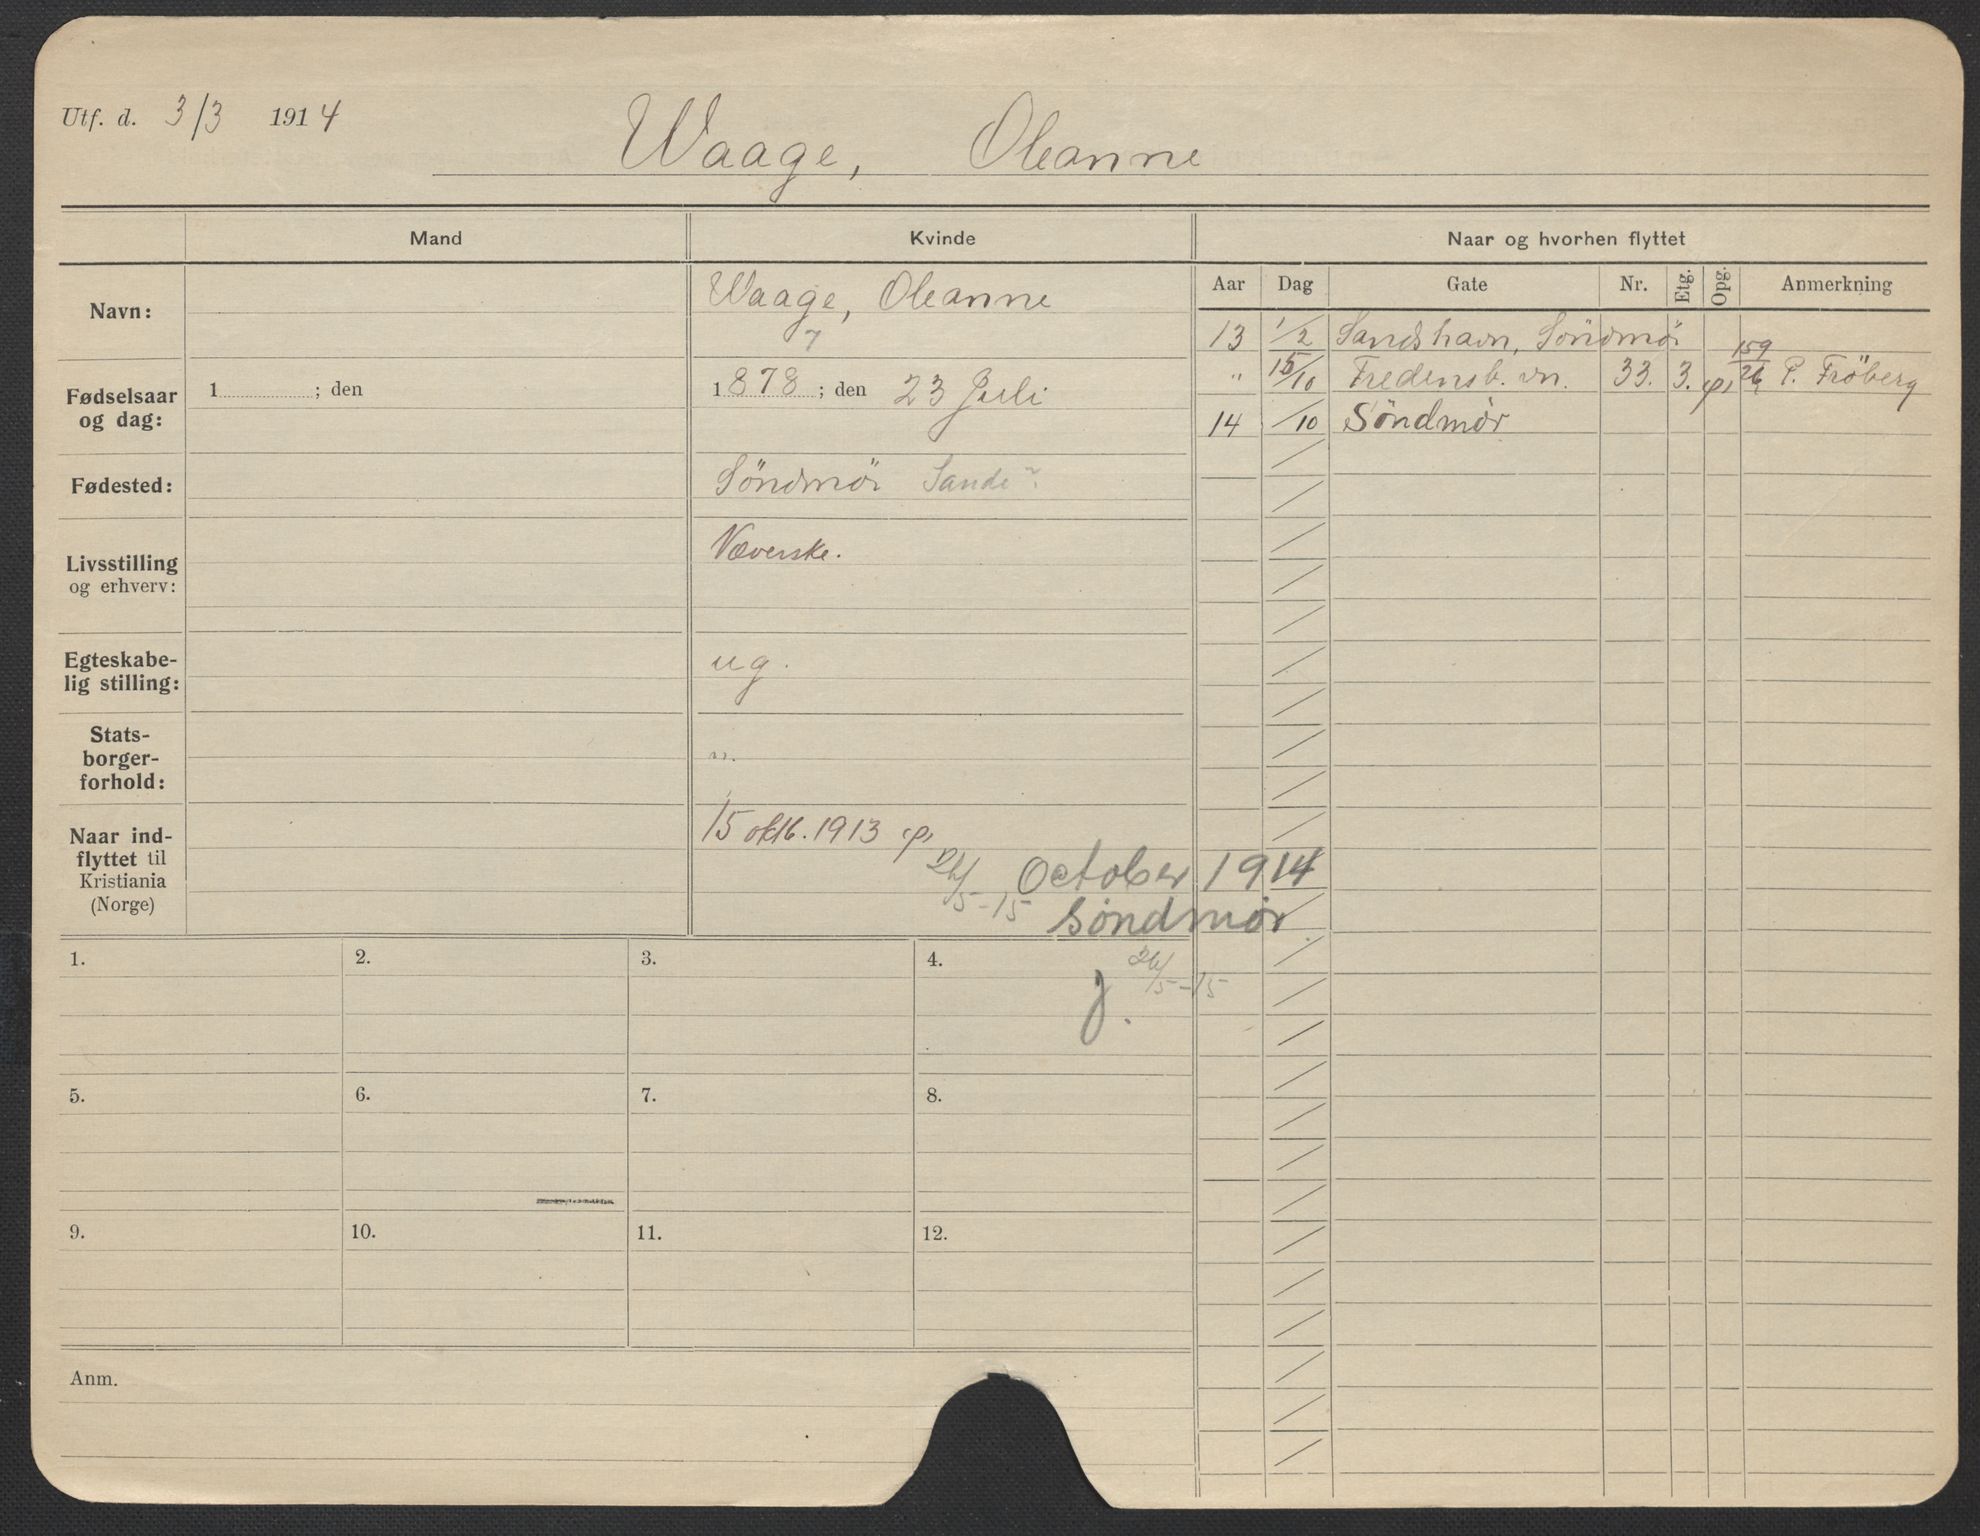 Utf. d. 3/3 1914
Waage, Oleanne
Mand Kvinde Naar og hvorhen flyttet
Aar Dag Gate Nr. Etg. Opg. Anmerkning
Navn: Waage, Oleanne
7
Fødselsaar og dag: 1 ; den 1878 ; den 23 Juli
Fødested: Söndmör Sande
Livsstilling og erhverv: Væverske.
Egteskabelig stilling: ug.
Statsborgerforhold: n.
Naar indflyttet til Kristiania (Norge) 15 oktb. 1913
26/5-15 October 1914
Söndmør
13 1/2 Sandshavn, Söndmör
" 15/10 Fredensb. vn. 33. 3. 159/26 P. Fröberg
14 /10 Söndmør
1. 2. 3. 4. 26/5-15
J.
5. 6. 7. 8.
9. 10. 11. 12.
Anm.